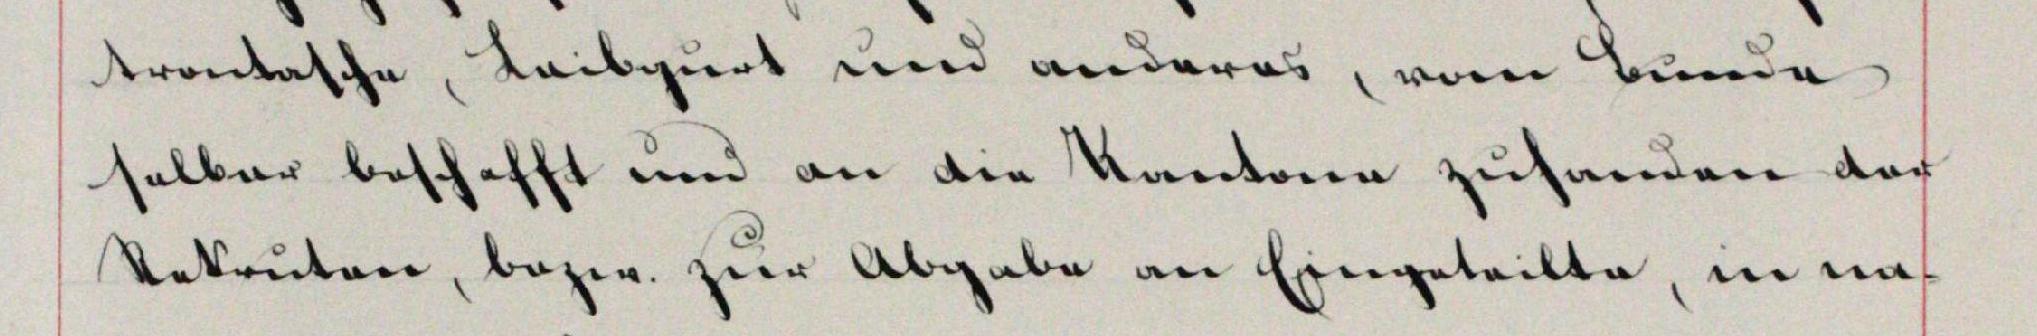 trontasche, Leibgurt und anderes, vom Bunde
selber beschafft und an die Kantone zuhanden der
Rekruten, bezw. zur Abgabe an Eingeteilte, in na-